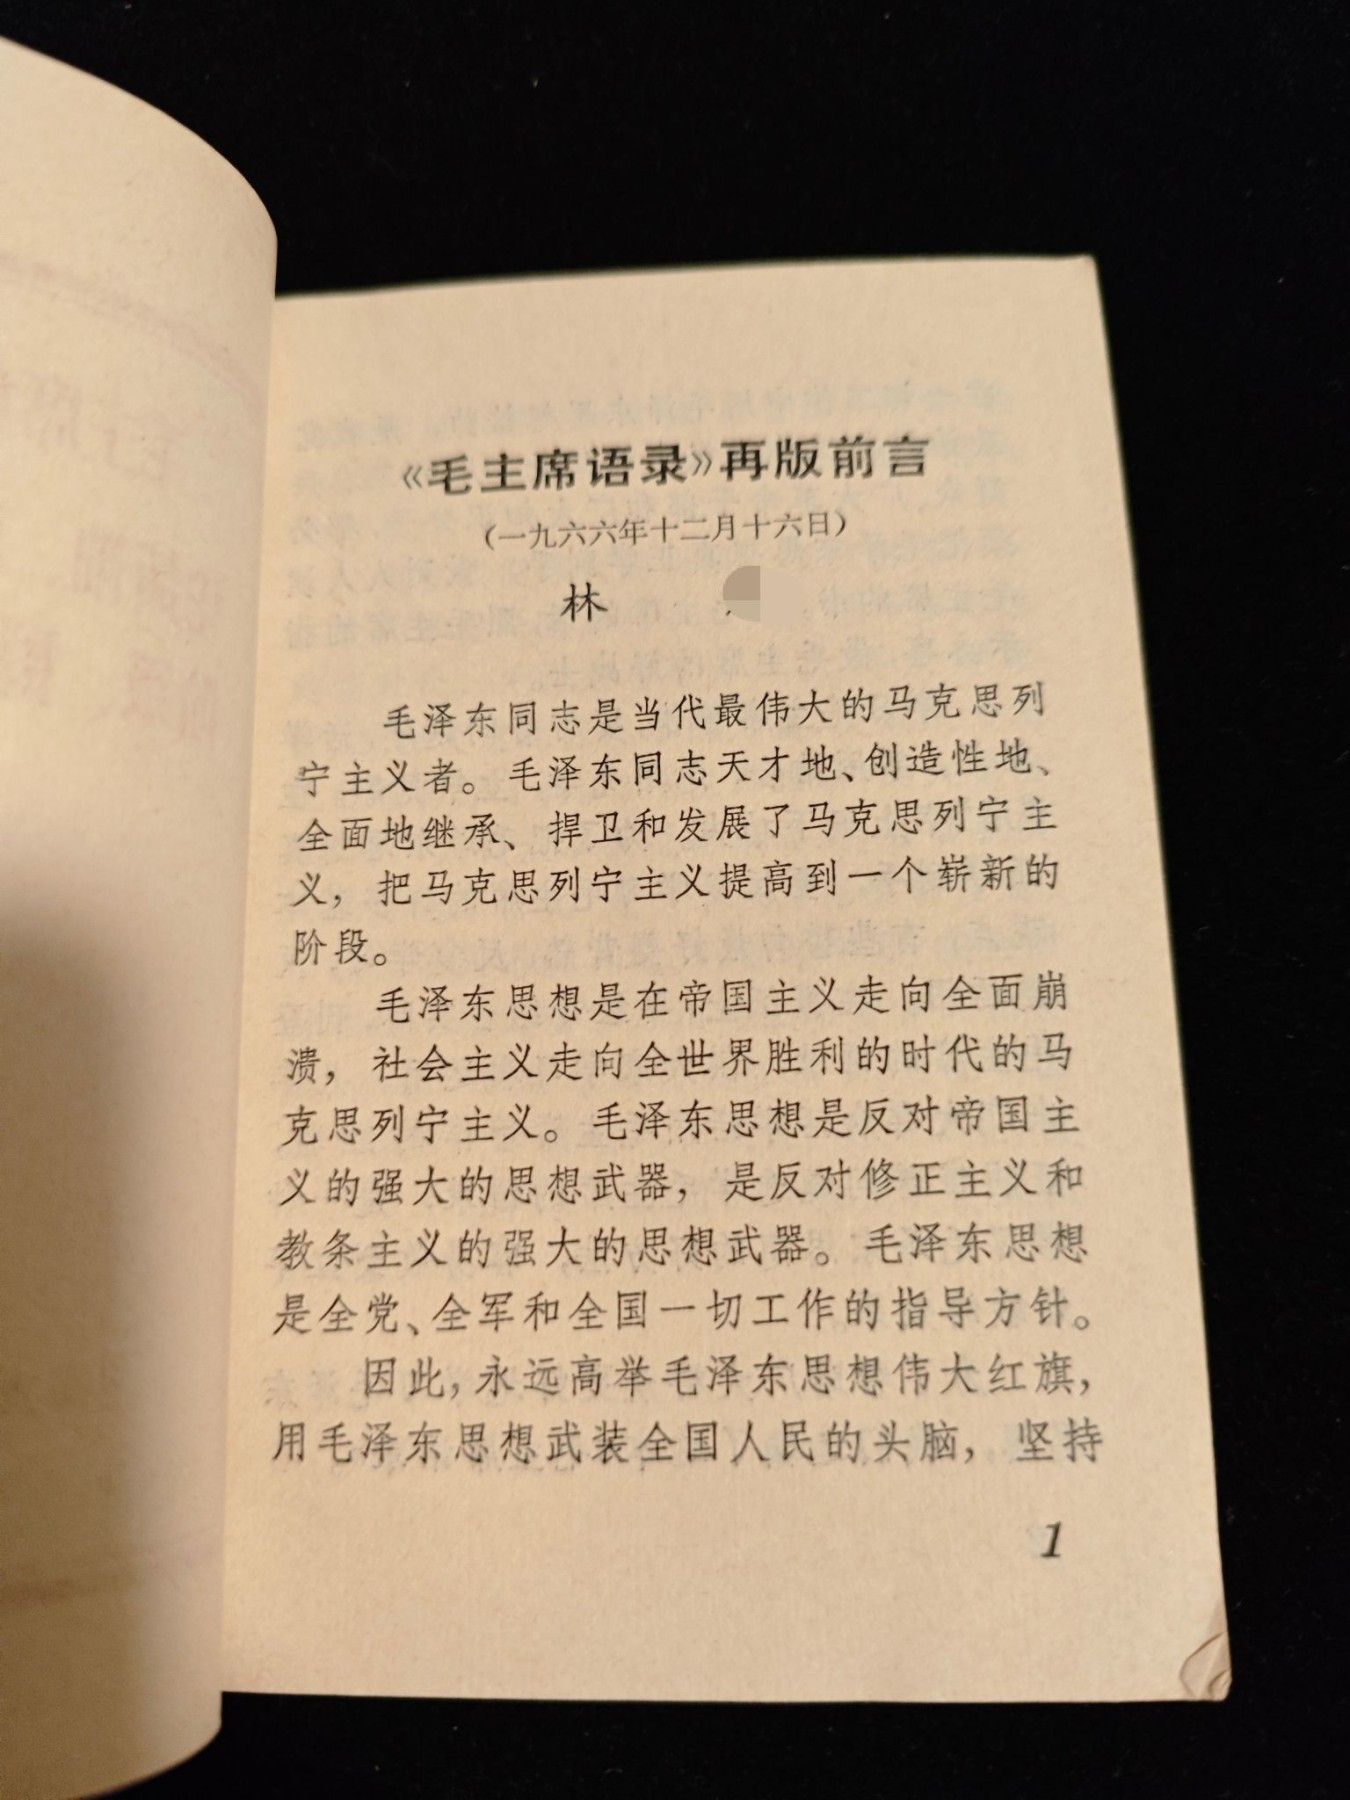 《毛主席语录》再版前言
（一九六六年十二月十六日）
林
毛泽东同志是当代最伟大的马克思列
宁主义者。毛泽东同志天才地、创造性地、
全面地继承、捍卫和发展了马克思列宁主
义，把马克思列宁主义提高到一个崭新的
阶段。
毛泽东思想是在帝国主义走向全面崩
溃，社会主义走向全世界胜利的时代的马
克思列宁主义。毛泽东思想是反对帝国主
义的强大的思想武器，是反对修正主义和
教条主义的强大的思想武器。毛泽东思想
是全党、全军和全国一切工作的指导方针。
因此，永远高举毛泽东思想伟大红旗，
用毛泽东思想武装全国人民的头脑，坚持
1